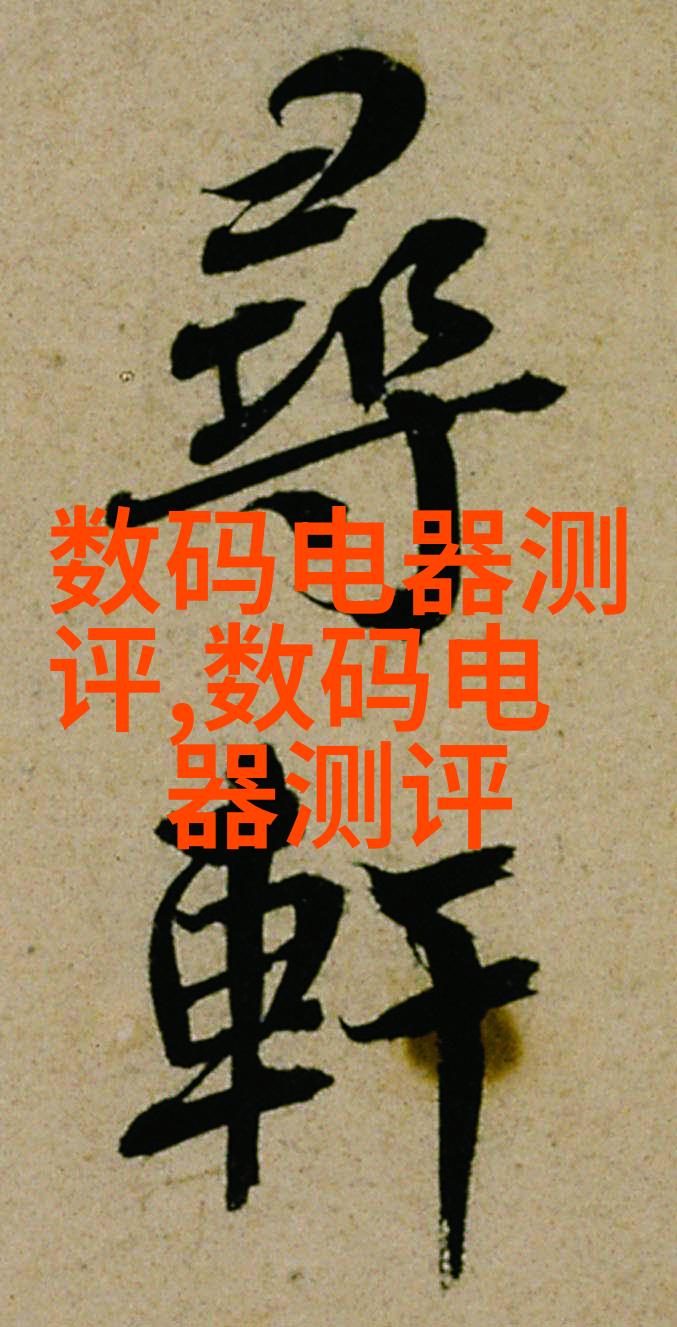 尋
軒
数码电器测
评,数码电
器测评